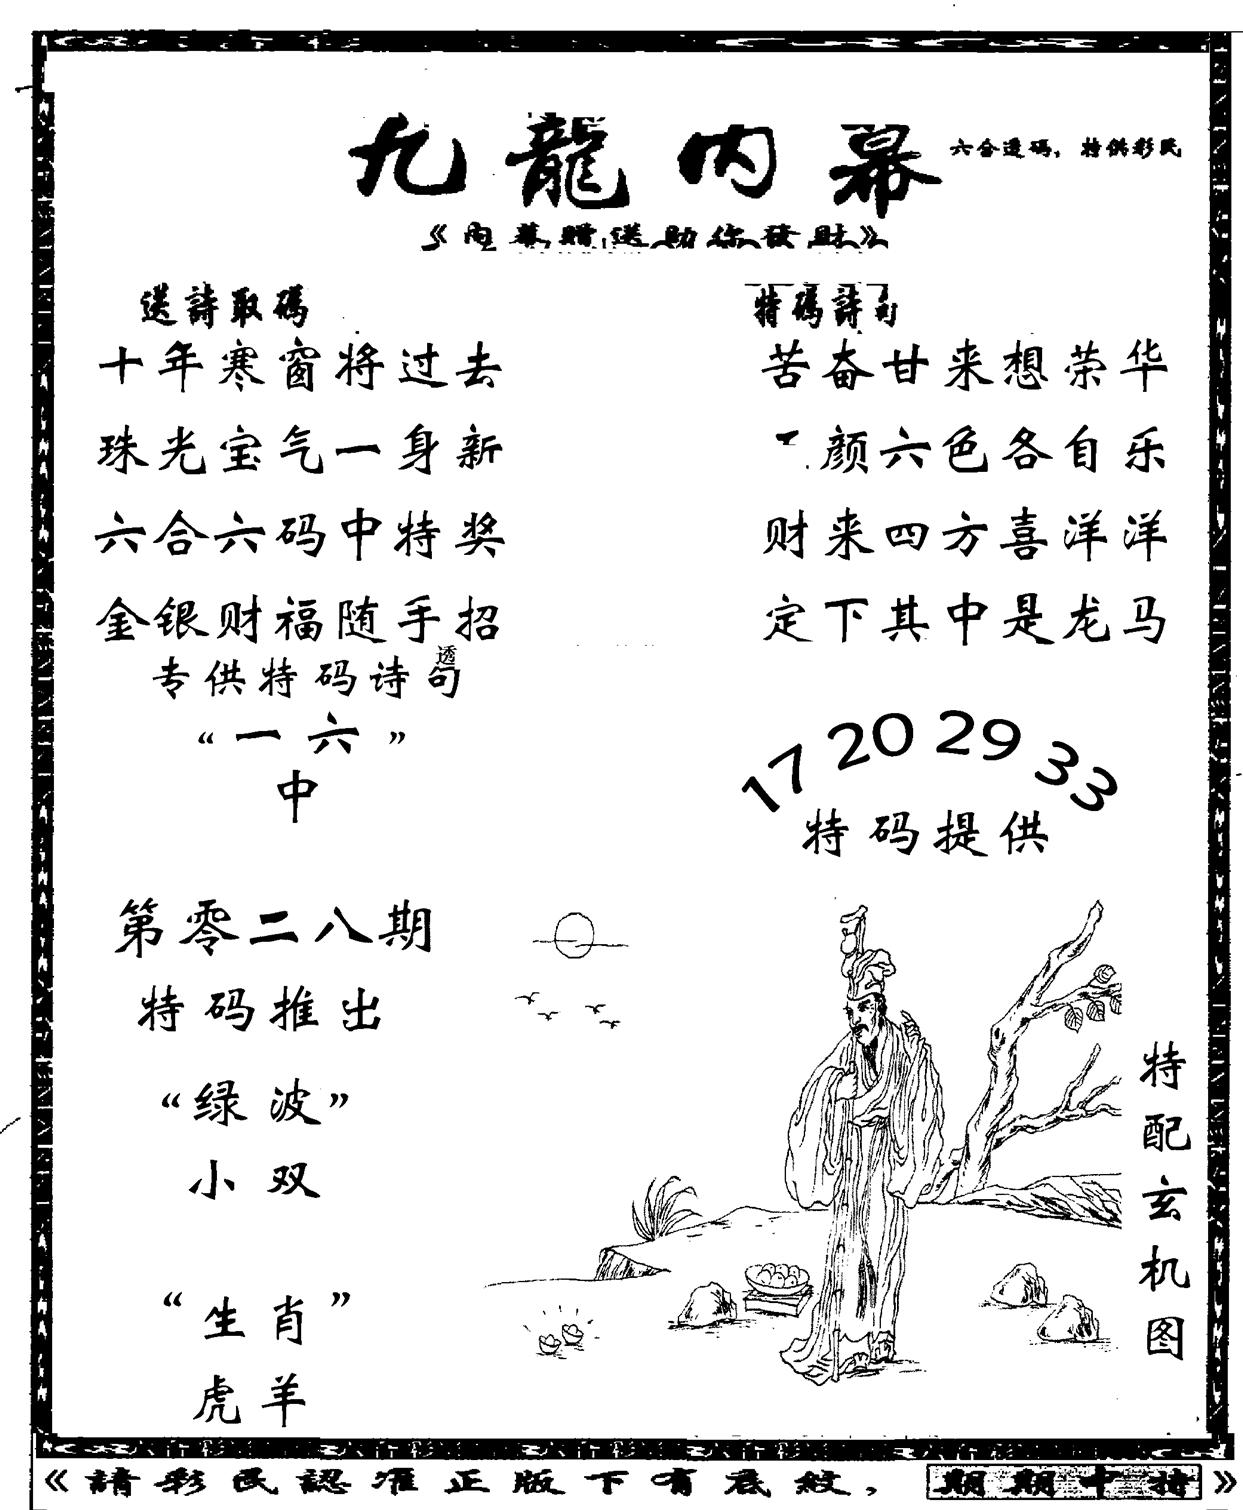 九龍内幕
六合透码，特供彩民
《内幕贈送助你發財》
送詩取碼
十年寒窗将过去
珠光宝气一身新
六合六码中特奖
金银财福随手招
专供特码诗句
透
“一六”
中
特碼詩句
苦奋甘来想荣华
颜六色各自乐
财来四方喜洋洋
定下其中是龙马
17 20 29 33
特码提供
第零二八期
特码推出
“绿波”
小双
“生肖”
虎羊
特配玄机图
《請彩民認准正版下有底紋，期期中特》